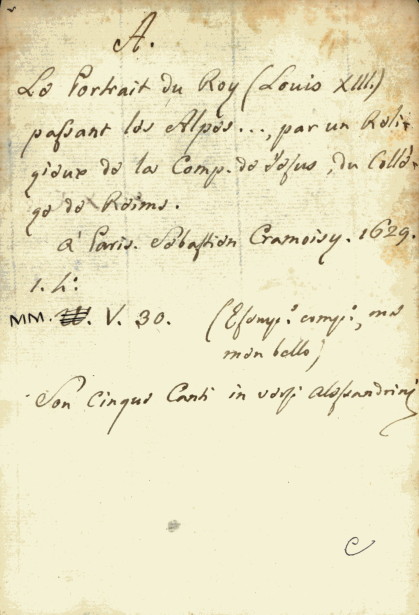 A.
Le Portrait du Roy (Louis XIII.)
passant les Alpes..., par un Reli-
gieux de la Comp. de Jesus, du Collè-
ge de Reims.
à Paris. Sébastien Cramoisy. 1629.
1. 4.°
MM. V. 30. (Esemp.° comp.°, ma
men bello)
Son cinque Canti in versi alessandrini
C